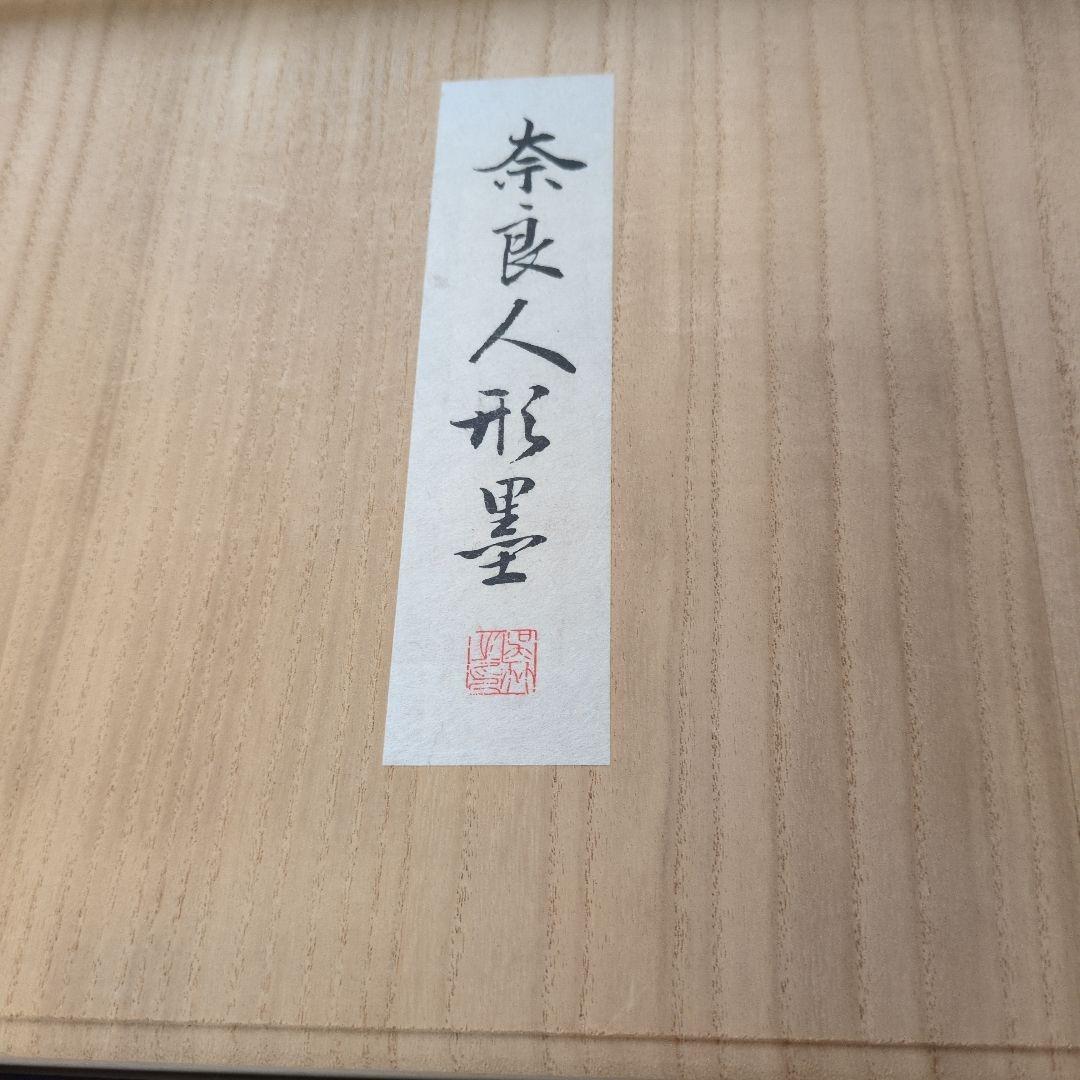 奈良人形墨